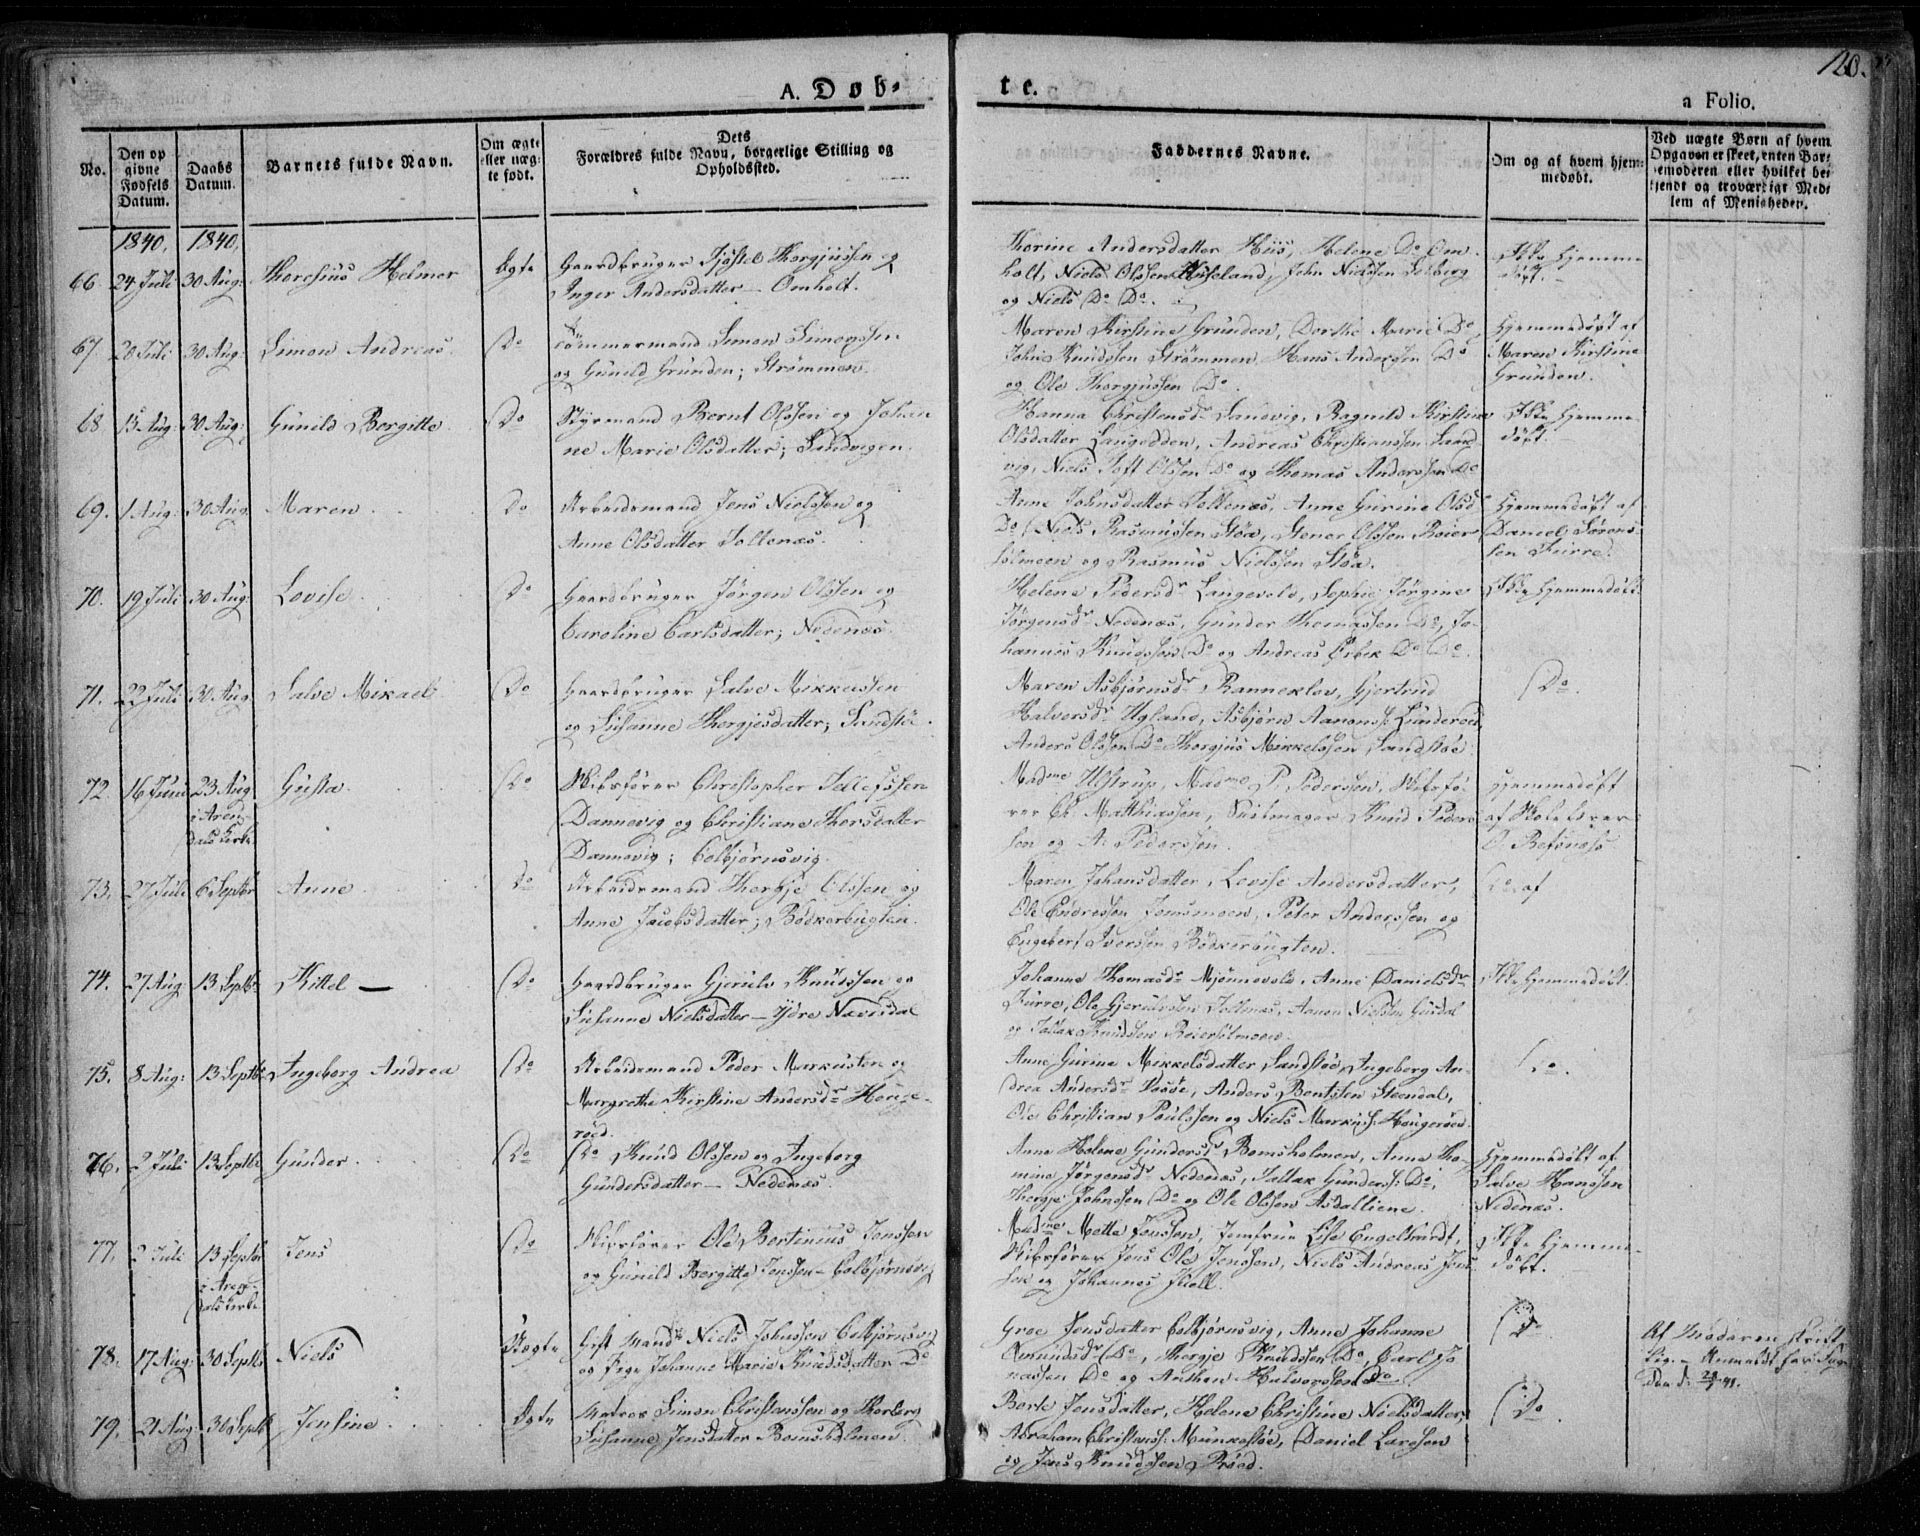 120.
A. Døb-
te.
a Folio.
No.
Den op
givne
Fødsels
Datum.
Daabs
Datum.
Barnets fulde Navn.
Om ægte
eller uæg-
te født.
Dets
Forældres fulde Navn, borgerlige Stilling og
Opholdssted.
Faddernes Navne.
Om og af hvem hjem-
medøbt.
Ved uægte Børn af hvem
Opgaven er skeet, enten Bar-
nemoderen eller hvilket be-
kjendt og troværdigt Med-
lem af Menigheden.
1840. 1840.
66. 24 Juli 30 Aug: Thoresius Helmer Ægte Gaardbruger Tjøstel Thorgjussen og
Inger Andersdatter - Omholt.
Thorine Andersdatter Hiis, Helene Do Om
holt, Niels Olssen Huseland, John Nielssen
og Niels Do Do.
Ikke hjemme
døbt.
67. 28 Juli 30 Aug: Simon Andreas. Do Tømmermand Simon Simonssen
og Gunild Grunden; Strømmen.
Maren Kirstine Grunden, Dorthe Marie Do,
John Knudssen Strømmen, Hans Anderssen Do
og Ole Thorgjussen Do.
Hjemmedøbt af
Maren Kirstine
Grunden.
68 15 Aug: 30 Aug: Gunild Bergitte. Do Styrmand Bernt Olssen og Johan
ne Marie Olsdatter; Sandvigen.
Hanna Christensdr Sandvig, Ragnild Kirstine
Olsdatter Langodden, Andreas Christianssen Sand
vig, Niels Toft Olssen Do og Thomas Anderssen Do
Ikke hjemme-
døbt.
69. 1 Aug: 30 Aug: Maren Do Arbeidsmand Jens Nielssen og
Anne Olsdatter Sollenæs.
Anne Johnsdatter Sollenæs, Anne Gurine Olsd
Do, Niels Rasmussen Støa, Stener Olssen Reier
holmen og Rasmus Nielssen Støa.
Hjemmedøbt af
Daniel Sørens-
sen Furre.
70. 19 Juli 30 Aug: Lovise. Do Gaardbruger Jørgen Olssen og
Caroline Carlsdatter; Nedenæs.
Helene Pedersdr Langevold, Sophie Jørgine
Jørgensdr Nedenæs, Gunder Thomassen Do, Jo-
hannes Knudssen Do og Andreas Ørbek Do Do.
Ikke hjemmedøbt.
71. 22 Juli 30 Aug Salve Mikael Do Gaardbruger Salve Mikkelssen
og Susanne Thorgjesdatter; Sandstøe.
Maren Asbjørnsdr Ranneklev, Gjertrud
Halversdr Ugland, Asbjørn Aanons: Lunderoed,
Anders Olssen Do Thorgjus Mikkelssen Sandstøe
Do.
72. 16 Juni 23 Aug
i Aren-
dals Kirke. Gusta. Do Skibsfører Christopher Tellefssen
Dannevig og Christiane Thorsdatter
Dannevig; Colbjørnsvig.
Madme Ugstrup, Madme P. Pederssen, Skibsfø-
rer Ch. Matthiassen, Seilmager Knud Peders
sen og A. Pederssen.
Hjemmedøbt
af Skolelærer
O. Refsnæss
73. 27 Juli 6 Septbr Anne Do Arbeidsmand Thorgje Olssen og
Anne Jacobsdatter; Bødkerbugten.
Maren Johansdatter, Lovise Andersdatter,
Ole Endressen Jomsmoen, Peter Anderssen og
Engebert Iverssen Bødkerbugten.
Do af
74. 27 Aug 13 Septbr Kittel — Do Gaardbruger Gjerulv Knudssen og
Susanne Nielsdatter - Ydre Nævisdal
Johanne Thomasdr Mjønnevold, Anne Danielsdr
Furre, Ole Gjerulvssen Sollenæs, Aanon Nielssen Gusdal
og Tallak Knudssen Reierholmen.
Ikke hjemmedøbt.
75. 8 Aug: 13 Septbr Ingeborg Andrea Do Arbeidsmand Peder Markussen og
Margrethe Kirstine Andersdr Hauge-
røed.
Anne Gurine Mikkelsdatter Sandstøe, Ingeborg An-
drea Andersdr, Anders Bentssen Steendal,
Ole Christian Paulssen og Niels Markuss: Haugerøed.
Do.
76. 2 Juli 13 Septbr Gunder Do Do Knud Olssen og Ingeborg
Gundersdatter - Nedenæs.
Anne Helene Gundersd Bomsholmen, Anne Tho-
mine Jørgensdr Nedenæs, Tallak Gunderss: Do,
Thorgje Johnssen Do og Ole Olssen Asdalliene.
Hjemmedøbt af
Salve Hanssen
Nedenæs.
77. 2 Juli 13 Septbr
i Aren-
dals Kirke Jens Do Skibsfører Ole Bertinius Jenssen
og Gunild Bergitte Jenssen - Colbjørnsvig
Madme Mette Jenssen, Jomfrue Lise Engelhardt,
Skibsfører Jens Ole Jenssen, Niels Andreas Jens
sen og Johannes Juell.
Ikke hjemme-
døbt.
78. 17 Aug: 30 Septbr Niels Uægte Gift Mand Niels Johnssen Colbjørnsvig
og Pige Johanne Marie Knudsdatter Do
Groe Jensdatter Colbjørnsvig, Anne Johanne
Omundsdr Do, Thorgje Knudssen Do, Carl Jo
nassen Do og Anthon Halvorssen Do.
Do.
Af Moderen skrift
lig. - Anmeldt for Fog
den d:
79. 21 Aug: 30 Septbr Jensine Ægte Matros Simon Christenssen og Thorberg
Susanne Jensdatter Bomsholmen.
Berte Jensdatter, Helene Christine Nielsdatter,
Abraham Christenss: Munkestøe, Daniel Larssen
og Jens Knudssen Røed.
Do